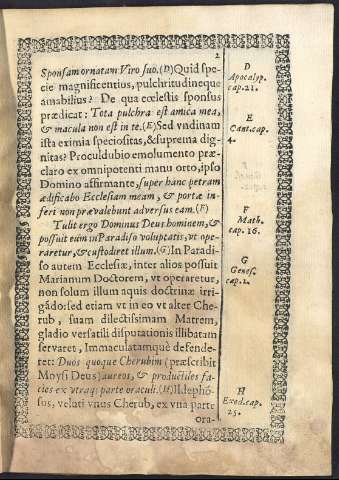 2
Sponsam ornatam Viro suo.(D)Quid spe
cie magnificentius, pulchritudineque
amabilius? De qua cœlestis sponsus
prædicat: Tota pulchra est amica mea,
& macula non est in te.(E)Sed vndinam
ista eximia speciositas, & suprema dig
nitas? Proculdubio emolumento præ
claro ex omnipotenti manu orto, ipso
Domino affirmante, super hanc petram
ædificabo Ecclesiam meam, & portæ in
feri non prævalebunt adversus eam.(F)
Tulit ergo Dominus Deus hominem, &
possuit eum in Paradiso voluptatis, vt ope
raretur, & custodiret illum.(G)In Paradi
so autem Ecclesiæ, inter alios possuit
Marianum Doctorem, vt operaretur,
non solum illum aquis doctrinæ irri
gãdo: sed etiam vt in eo vt alter Che
rub, suam dilectissimam Matrem,
gladio versatili disputationis illibatam
servaret, Immaculatamquè defende
ret: Duos quoque Cherubim (præscribit
Moysi Deus) aureos, & productiles fa
cies ex utraq; parte oraculi.(H)Ildephõ
sos, veluti vnus Cherub, ex vna parte
ora-
D
Apocalyp.
cap.21.
E
Cant.cap.
4.
F
Math.
cap.16.
G
Genes.
cap.2.
H
Exod.cap.
25.